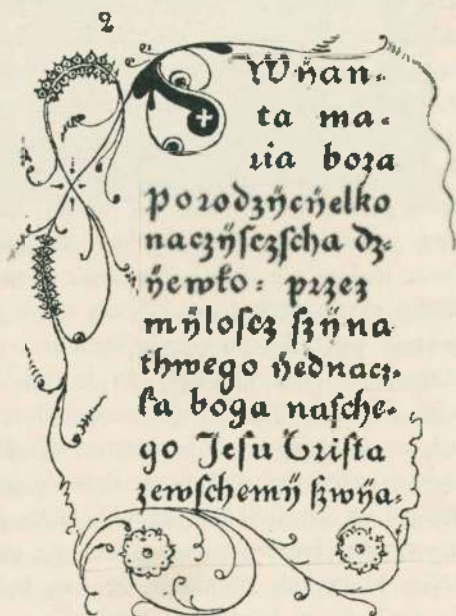 2
SWÿan⸗
ta ma⸗
ria boza
porodzÿcÿelko
naczÿsczscha dz⸗
ÿewko : przez
mÿloscz szÿna
thwego ÿednacz⸗
ka boga nasche⸗
go Jesu Crista
zewschemÿ szwÿa⸗